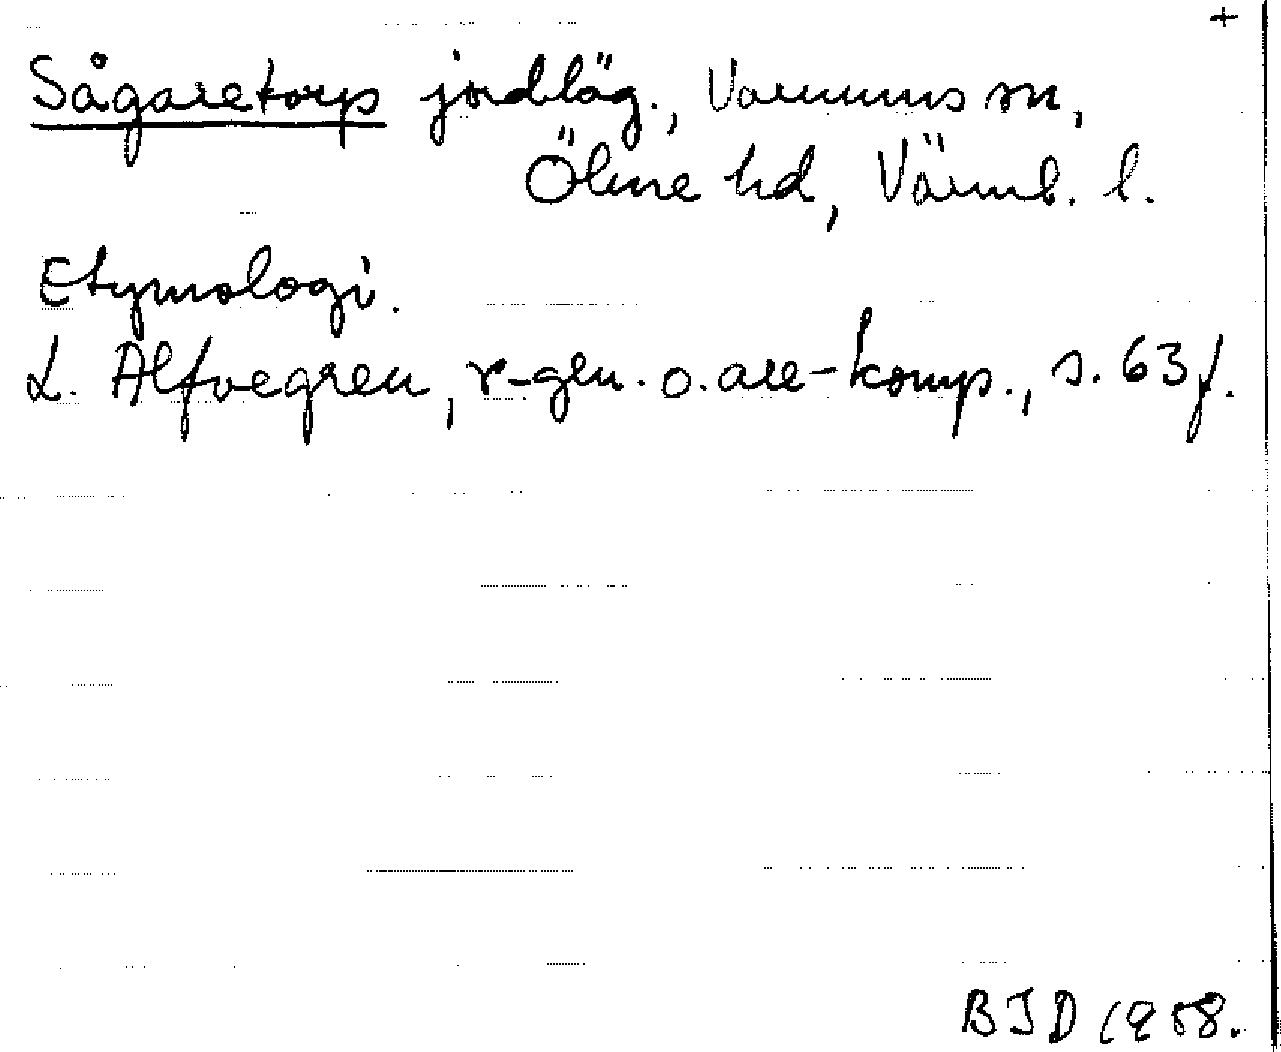 +
Sågaretorp jordläg., Varnums sn,
Ölme hd, Värml. l.
Etymologi.
L. Alfvegren, r-gen. o. are-komp., s. 63 f.
BJD 1958.